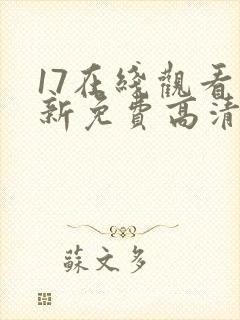 17在綫觀看
新免費高清
蘇文多